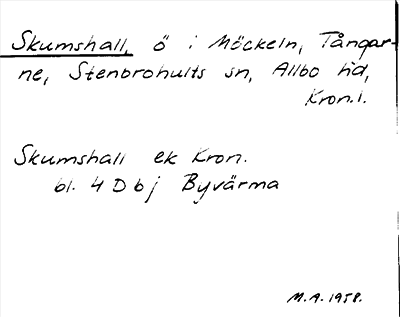 Skumshall, ö i Möckeln, Tångar-
ne, Stenbrohults sn, Allbo hd,
Kron.l.
Skumshall ek Kron.
bl. 4 D b j Byvärma
M.A. 1958.